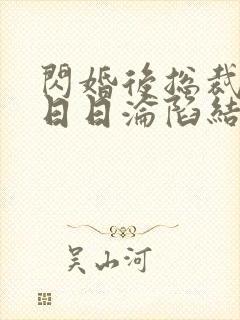 閃婚後總裁
日日淪陷結
吴山河